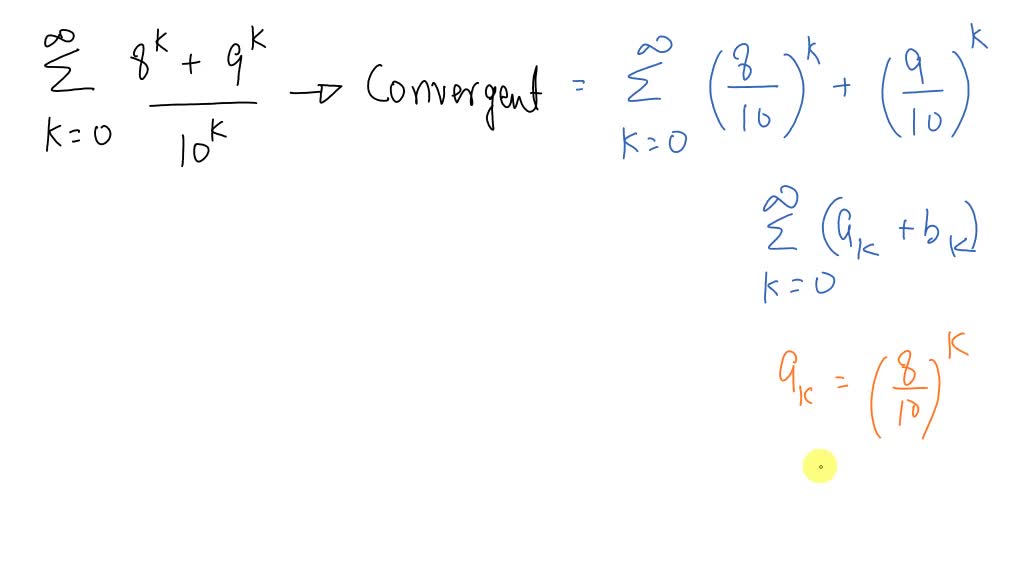 ∞ ∑ k=0 (8^k + 9^k)/10^k → Convergent = ∞ ∑ k=0 (8/10)^k + (9/10)^k
∞ ∑ k=0 (a_k + b_k)
a_k = (8/10)^k